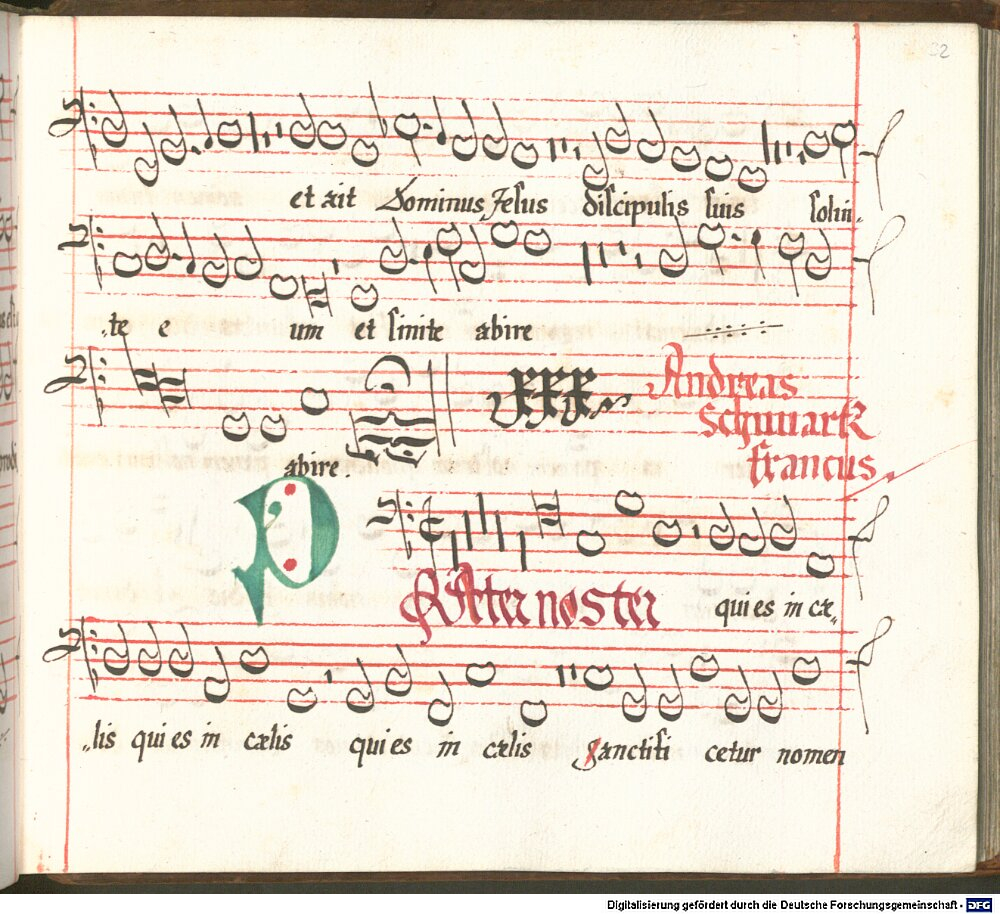 32
et xit Dominus Jesus discipulis suis solui-
te e um et sinite abire
xxx. Andreas
Schuuartz
francus.
abire.
P
PAter noster qui es in cæ-
lis qui es in cælis qui es in cælis Sanctifi cetur nomen
Digitalisierung gefördert durch die Deutsche Forschungsgemeinschaft - DFG